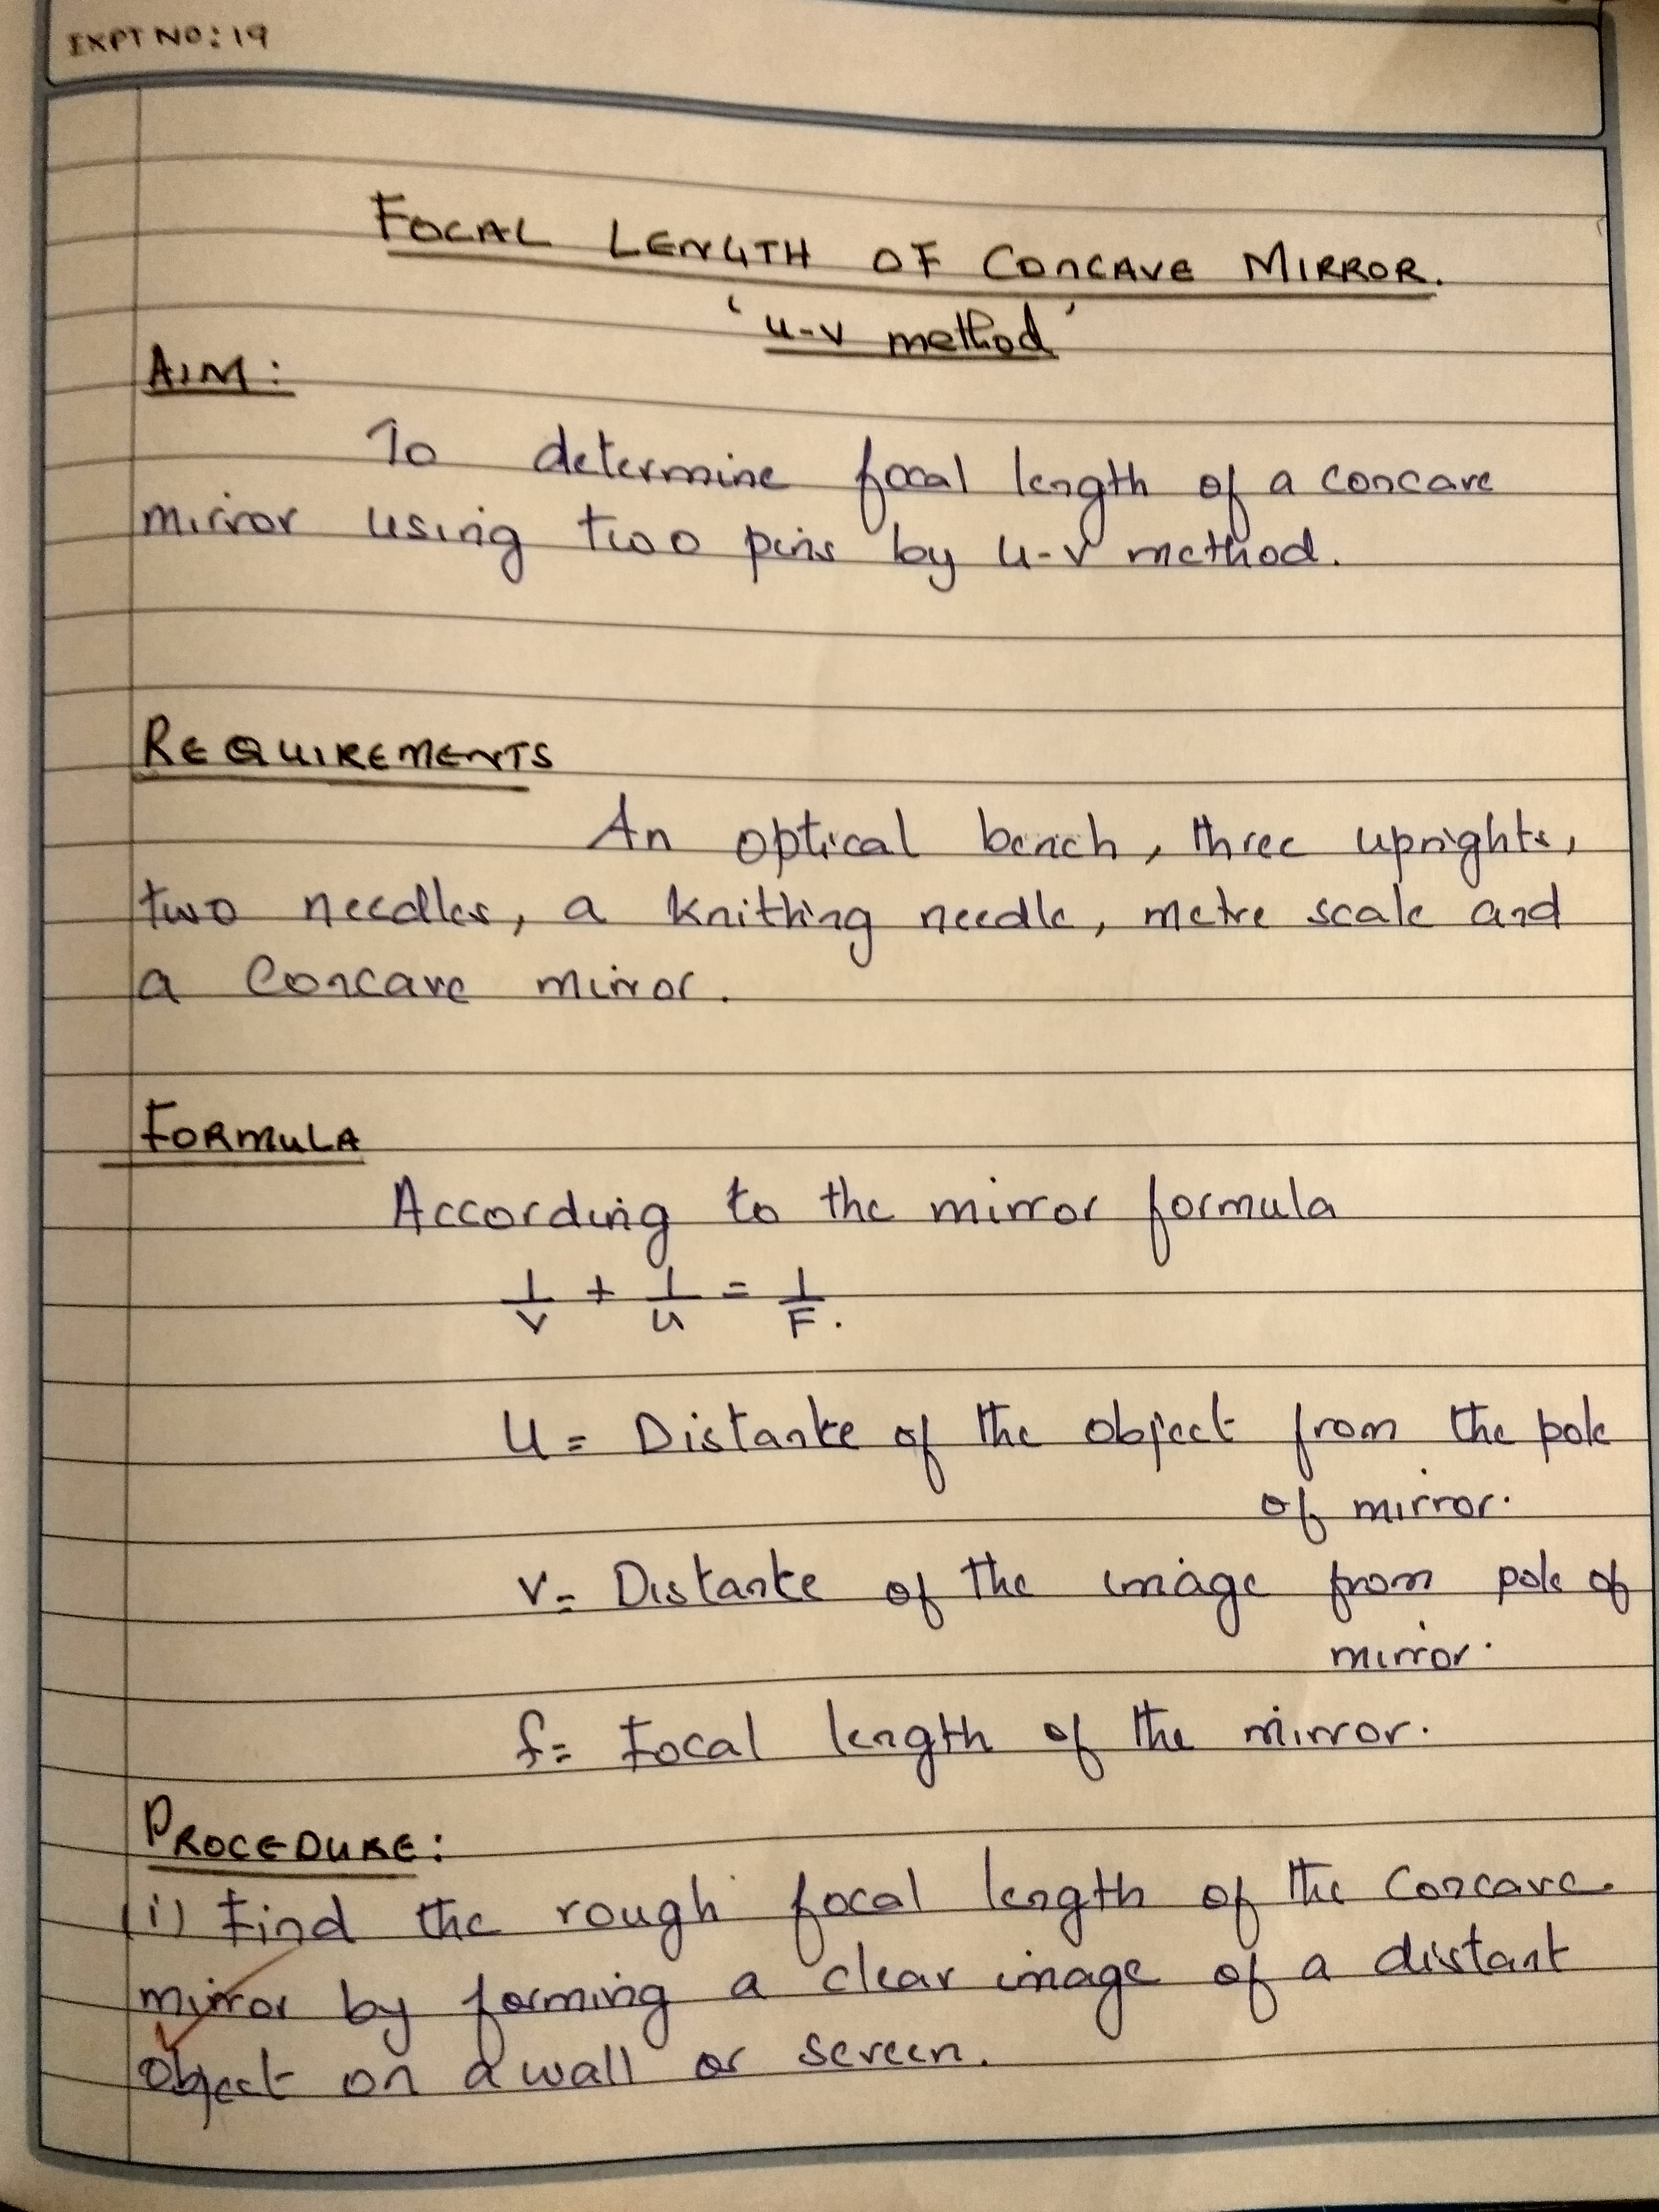 EXPT NO: 19
FOCAL LENGTH OF CONCAVE MIRROR.
'u-v method'
AIM:
To determine focal length of a concave
mirror using two pins by u-v method.
REQUIREMENTS
An optical bench, three uprights,
two needles, a knitting needle, metre scale and
a concave mirror.
FORMULA
According to the mirror formula
1/v + 1/u = 1/F.
u = Distanke of the object from the pole
of mirror.
v = Distanke of the image from pole of
mirror.
f = Focal length of the mirror.
PROCEDURE:
(i) Find the rough focal length of the concave
mirror by forming a clear image of a distant
object on a wall or screen.